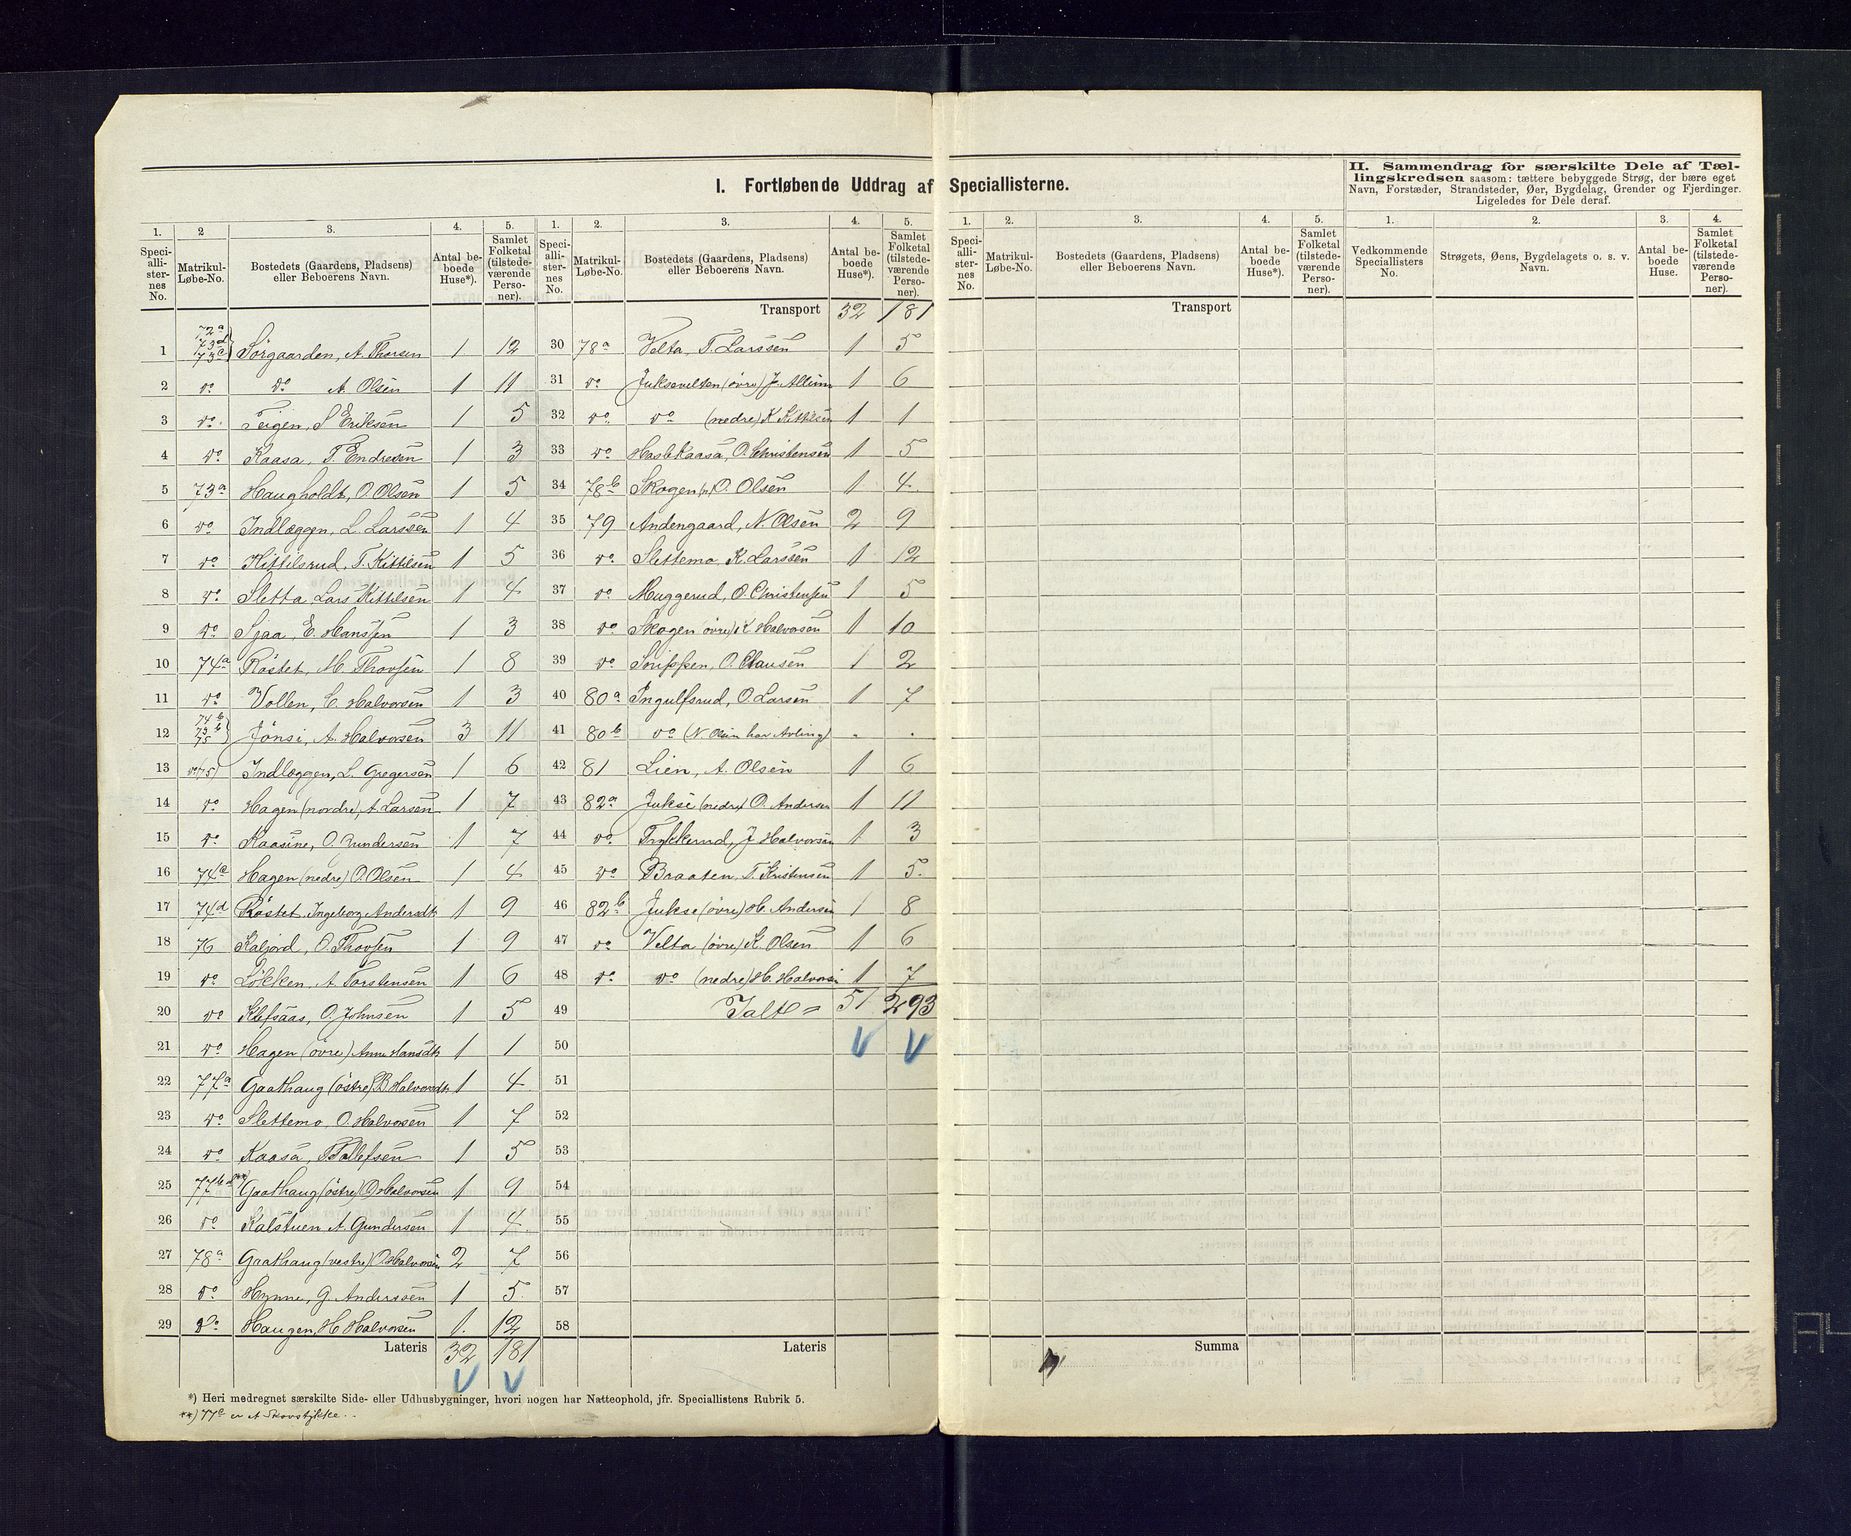 I. Fortløbende Uddrag af Speciallisterne.
II. Sammendrag for særskilte Dele af Tællingskredsen saasom: tættere bebyggede Strøg, der bære eget Navn, Forstæder, Strandsteder, Øer, Bygdelag, Grender og Fjerdinger. Ligeledes for Dele deraf.
1. 2 3. 4. 5. 1. 2. 3. 4. 5. 1. 2. 3. 4. 5. 1. 2. 3. 4.
Speciallisternes No. Matrikul-Løbe-No. Bostedets (Gaardens, Pladsens) eller Beboerens Navn. Antal beboede Huse*). Samlet Folketal (tilstedeværende Personer).
Speciallisternes No. Matrikul-Løbe-No. Bostedets (Gaardens, Pladsens) eller Beboerens Navn. Antal beboede Huse*). Samlet Folketal (tilstedeværende Personer).
Speciallisternes No. Matrikul-Løbe-No. Bostedets (Gaardens, Pladsens) eller Beboerens Navn. Antal beboede Huse*). Samlet Folketal (tilstedeværende Personer).
Vedkommende Speciallisters No. Strøgets, Øens, Bygdelagets o. s. v. Navn. Antal beboede Huse. Samlet Folketal (tilstedeværende Personer).
1 72a 73d 73c } Sørgaarden, A. Thorsen 1 12
2 do do A. Olsen 1 11
3 do Teigen, S Eriksen 1 5
4 do Kaasa, T. Endresen 1 3
5 73a Haugholdt, O. Olsen 1 5
6 do Indlæggen, L. Larssen 1 4
7 do Kittilsrud, T. Kittilsen 1 5
8 do Sletta, Lars Kittilsen 1 4
9 do Sjaa, E. Hanssen 1 3
10 74a Røstet, M. Thovsen 1 8
11 do Vollen, C. Halvorsen 1 3
12 74b 73b 75 } Jønsi, A. Halvorsen 3 11
13 do(75) Indlæggen, L. Gregersen 1 6
14 do Hagen (nordre), A. Larsen 1 7
15 do Kaasine, O. Gundersen 1 7
16 74c Hagen (nedre) O. Olsen 1 4
17 74d Røstet, Ingeborg Andersdtr 1 9
18 76 Kaljord, O. Thovsen 1 9
19 do Løkken, A. Torstensen 1 6
20 do Klefsaas, O. Johnsen 1 5
21 do Hagen (øvre) Anne Hansdtr 1 1
22 77a Gaathaug (østre) B Halvorsdtr 1 4
23 do Slettemo, O. Halvorsen 1 7
24 do Kaasa, T Tollefsen 1 5
25 77b **) Gaathaug (østre) O Halvorsen 1 9
26 do Kalstuen A. Gundersen 1 4
27 78a Gaathaug (vestre) O. Halvorsen 2 7
28 do Hynne, G. Anderssen 1 5
29 do Haugen, H Halvorsen 1 12
Lateris 32 181
Transport 32 181
30 78a Velta, T. Larssen 1 5
31 do Juksevelten (øvre) J. Allum 1 6
32 do do (nedre) K Kittilsen 1 1
33 do Haslekaasa, O. Christensen 1 5
34 78b Skogen O. Olsen 1 4
35 79 Andengaard, N. Olsen 2 9
36 do Slettemo, K. Larssen 1 12
37 do Muggerud, O. Christensen 1 5
38 do Skogen (øvre) K Halvorsen 1 10
39 do Snippen, O. Clausen 1 2
40 80a Ingulfsrud, O. Larsen 1 7
41 80b do (N Olsen har Avling) " "
42 81 Lien, A. Olsen 1 6
43 82a Jukse (nedre) O. Andersen 1 11
44 do Trykkerud, J Halvorsen 1 3
45 do Braaten, T. Kristensen 1 5
46 82b Jukse (øvre) H. Andersen 1 8
47 do Velta (øvre) K. Olsen 1 6
48 do do (nedre) H. Halvorsen 1 7
49 Ialt = 51 293
50
51
52
53
54
55
56
57
58
Lateris
Transport
Summa
*) Heri medregnet særskilte Side- eller Udhusbygninger, hvori nogen har Natteophold, jfr. Speciallistens Rubrik 5.
**) 77c er et Skovstykke.